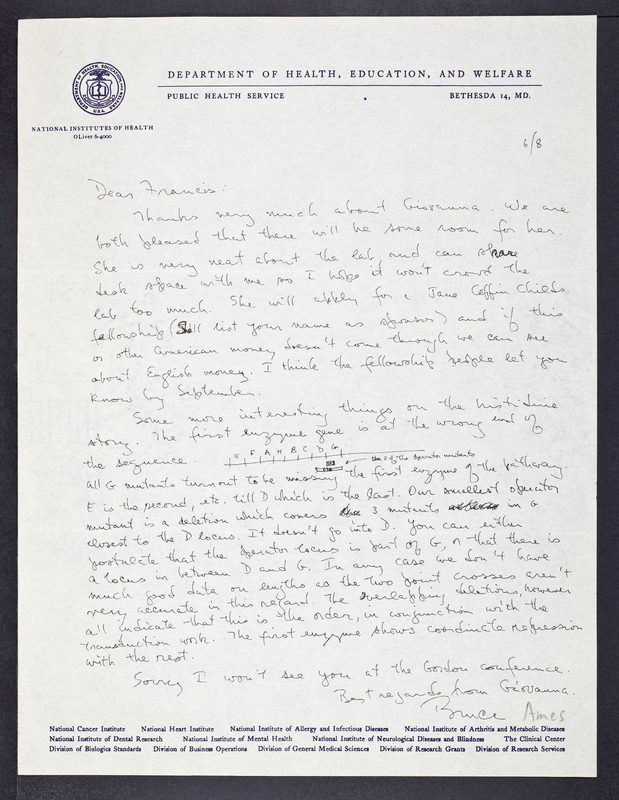 DEPARTMENT OF HEALTH, EDUCATION, AND WELFARE
PUBLIC HEALTH SERVICE
BETHESDA 14, MD.
NATIONAL INSTITUTES OF HEALTH
OLiver 6-4000
6/8
Dear Francis:
Thanks very much about Giovanna. We are
both pleased that there will be some room for her.
She is very neat about the lab and can share
desk space with me so I hope it won't crowd the
lab too much. She will apply for a Jane Coffin Childs
fellowship (She'll list your name as sponsor) and if this
or other American money doesn't come through we can see
about English money. I think the fellowship people let you
know by September.
Some more interesting things on the histidine
story. The first enzyme gene is at the wrong end of
the sequence.
E F A H B C D G
of the operator mutants
All G mutants turn out to be missing the first enzyme of the pathway.
E is the second, etc. till D which is the last. Our smallest operator
mutant is a deletion which covers 3 mutants in G
closest to the D locus. It doesn't go into D. You can either
postulate that the operator locus is part of G, or that there is
a locus in between D and G. In any case we don't have
much good data on lengths as the two point crosses aren't
very accurate in this regard. The overlapping deletions, however
all indicate that this is the order, in conjunction with the
transduction work. The first enzyme shows coordinate repression
with the rest.
Sorry I won't see you at the Gordon Conference.
Best regards from Giovanna.
Bruce Ames
National Cancer Institute National Heart Institute National Institute of Allergy and Infectious Diseases National Institute of Arthritis and Metabolic Diseases
National Institute of Dental Research National Institute of Mental Health National Institute of Neurological Diseases and Blindness The Clinical Center
Division of Biologics Standards Division of Business Operations Division of General Medical Sciences Division of Research Grants Division of Research Services